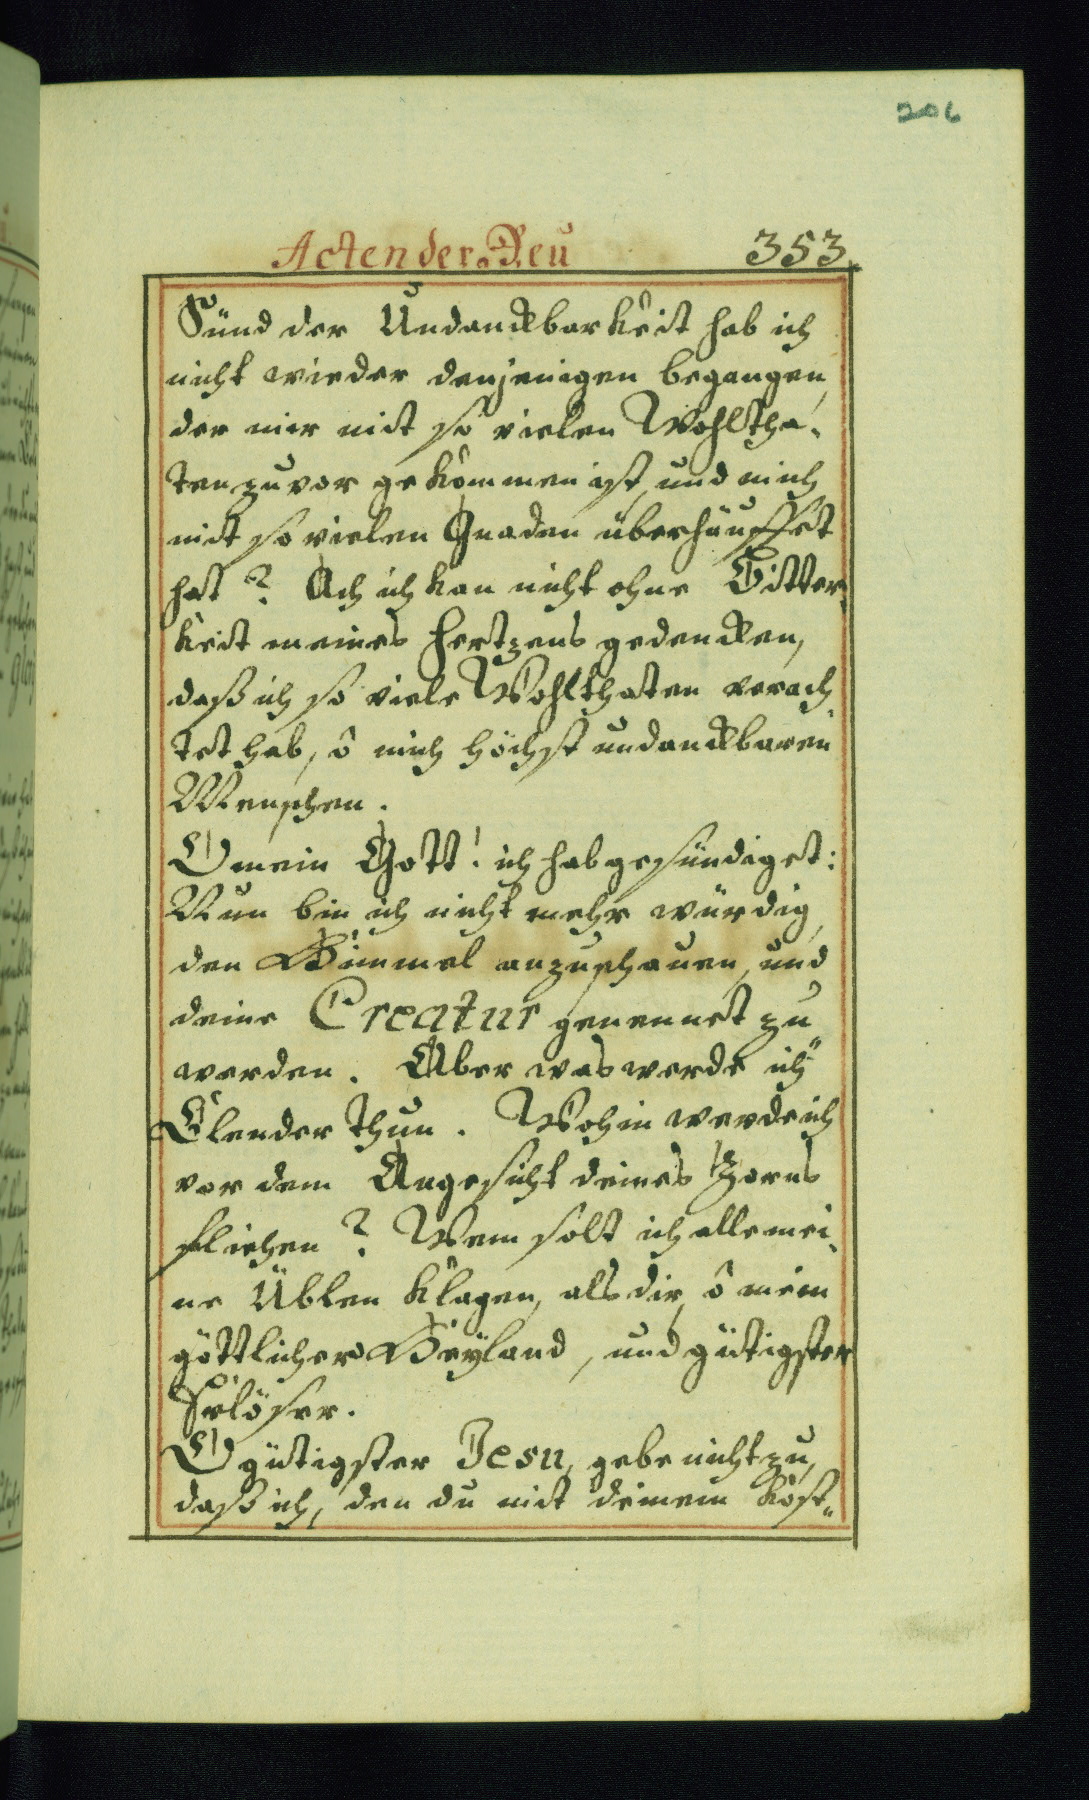 206
Acten der Reu 353
Sünd der Undanckbarkeit hab ich
nicht wieder denjenigen begangen,
der mir mit so vielen Wohltha-
ten zuvor gekommen ist, und mich
mit so vielen Gnaden überhäuffet
hat? Ach ich kan nicht ohne Bitter-
keit meines Hertzens gedencken,
daß ich so viele Wohlthaten verach-
tet hab, ô mich höchst undanckbaren
Menschen.
O mein Gott! ich hab gesündiget:
Nun bin ich nicht mehr würdig,
den Himmel anzuschauen, und
deine Creatur genennet zu
werden. Aber was werde ich
Elender thun. Wohin werde ich
vor dem Angesicht deines Zorns
fliehen? Wem solt ich alle mei-
ne Üblen klagen, als dir, ô mein
göttlicher Heyland, und gütigster
Erlöser.
O gütigster Jesu, gebe nicht zu,
daß ich, den du mit deinem köst-